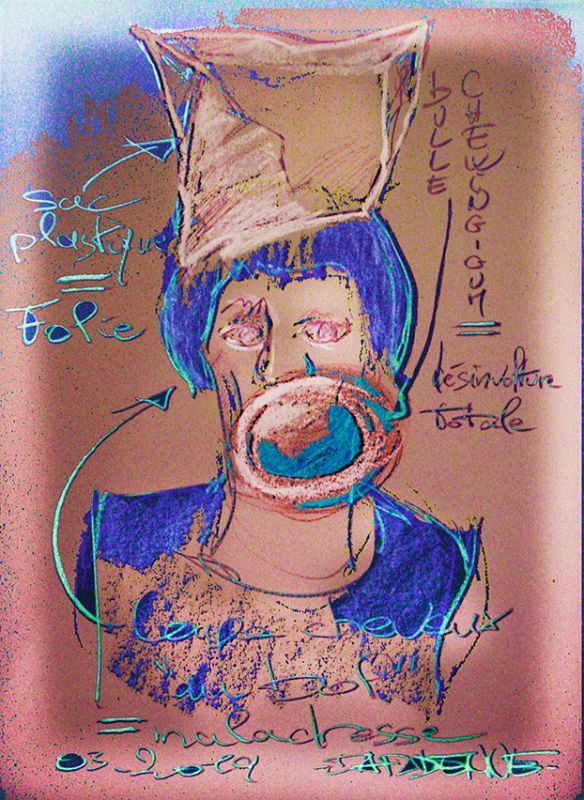 sac
plastique
=
Folie
BULLE
CHEWING-GUM
=
désinvolture
totale
Coupe cheveux
"au bol"
= maladresse
03_2019